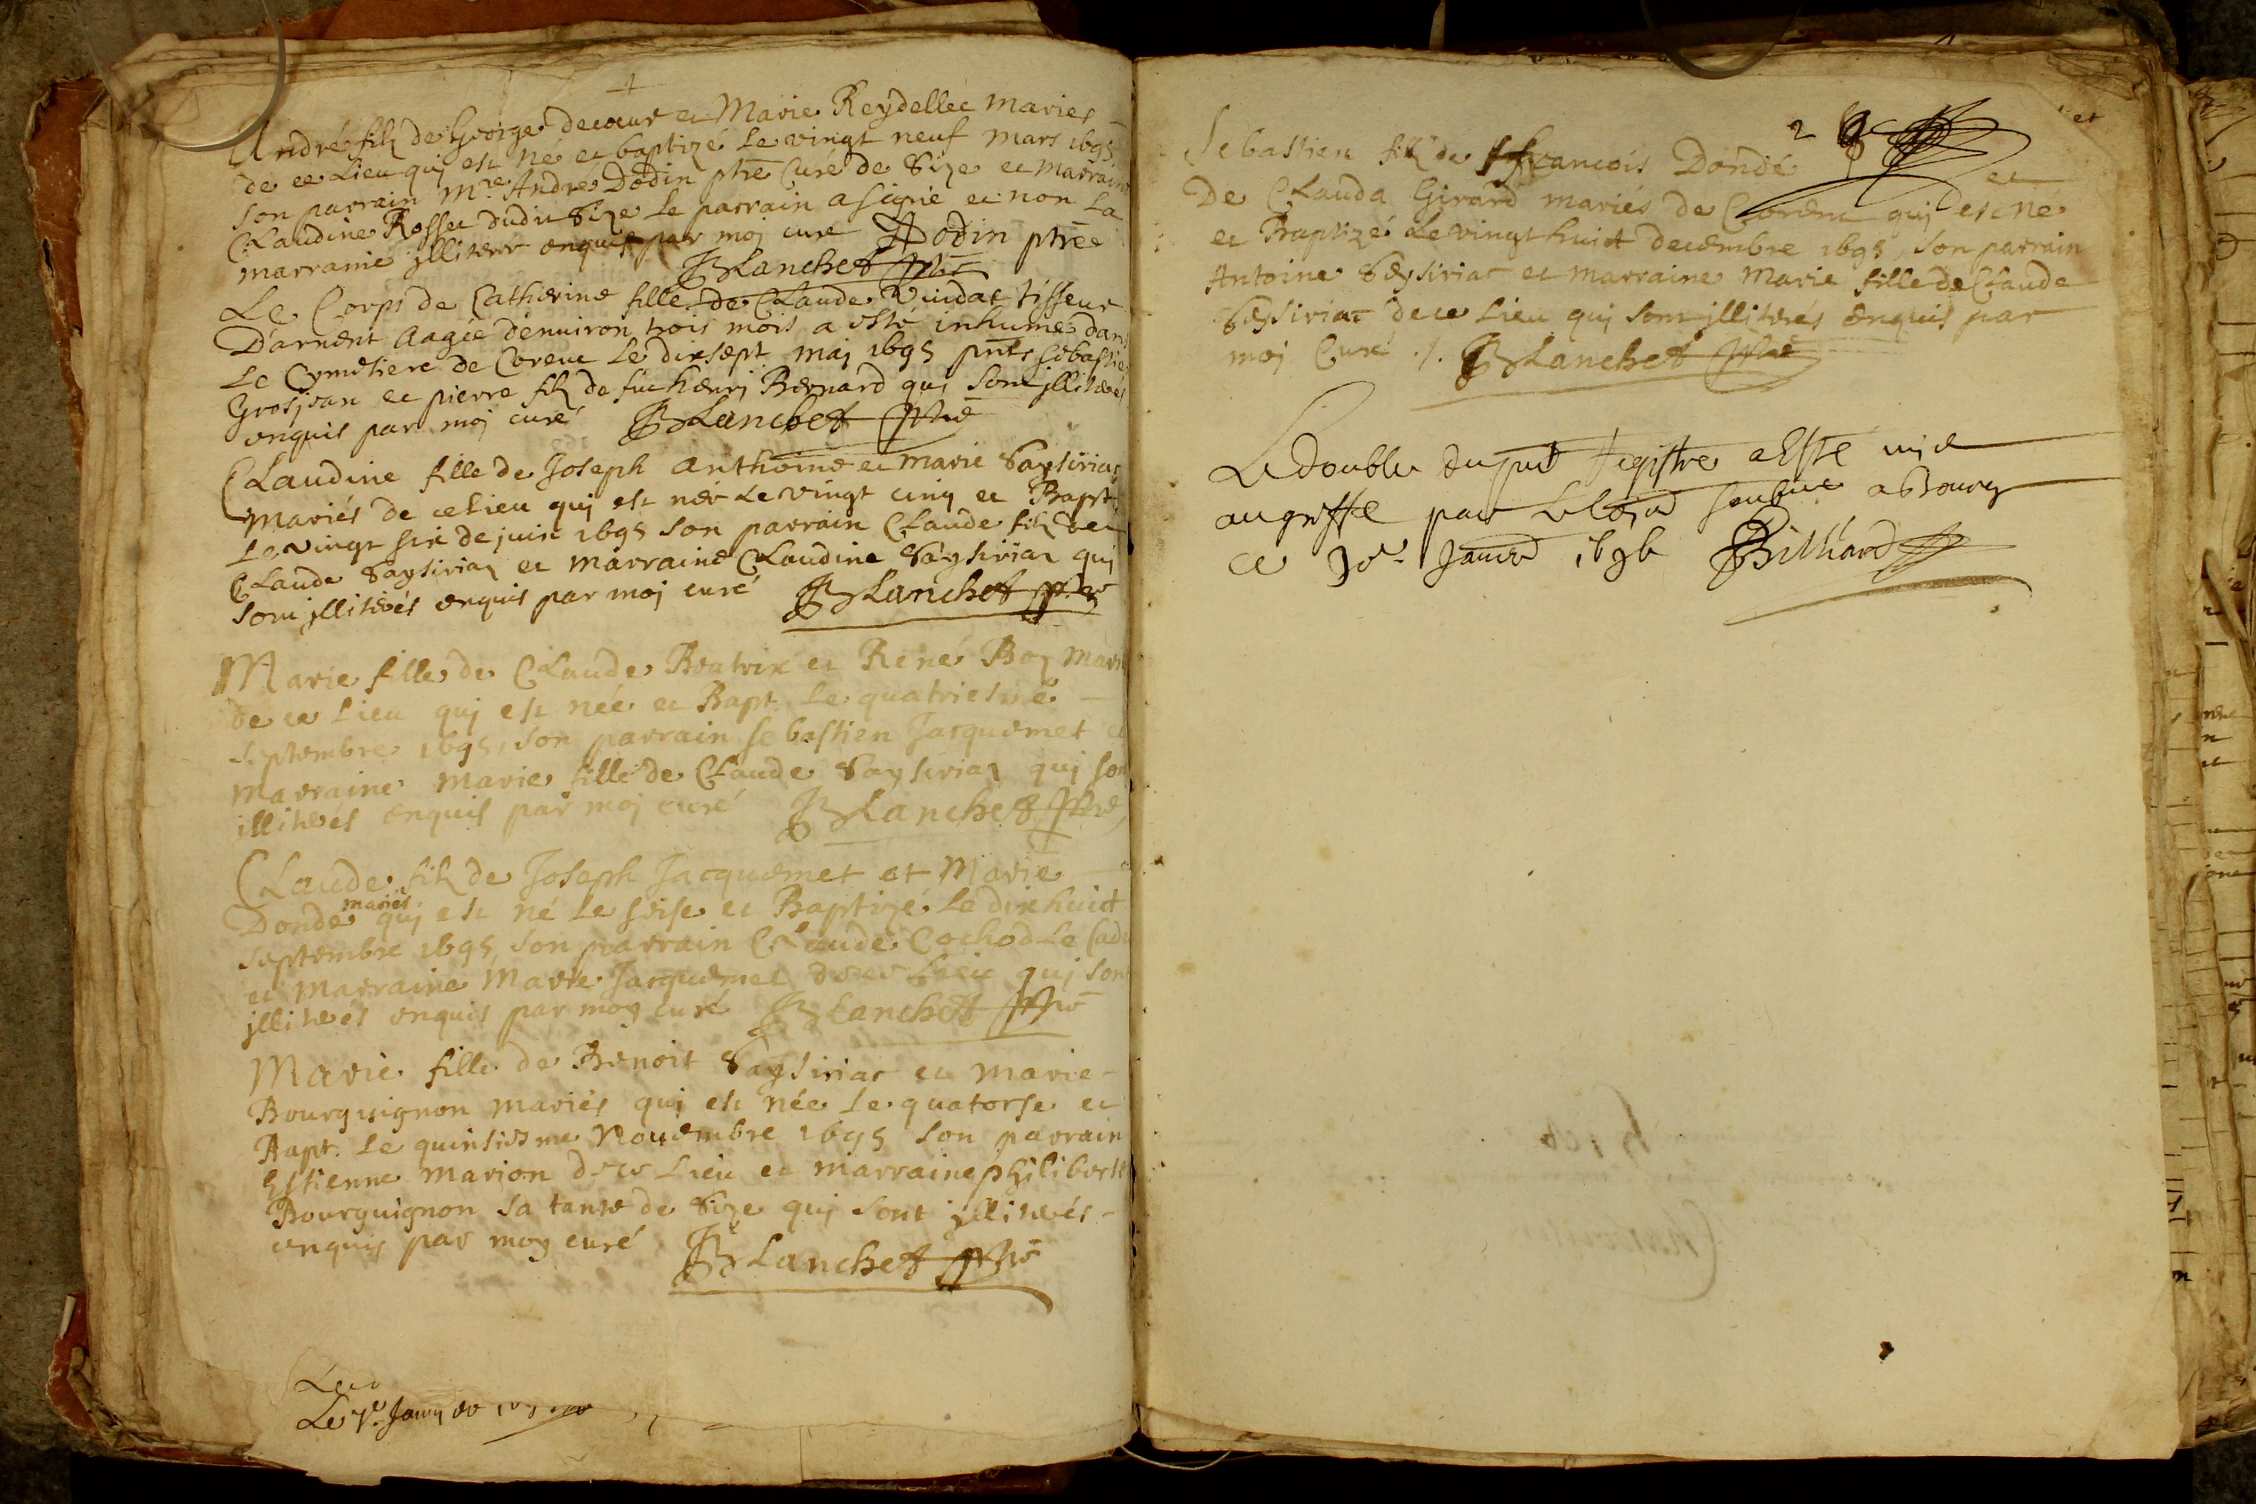 André fils de George decoeur et Marie Reydellec mariés
de ce Lieu quj est né et baptizé le vingt neuf mars 1695
son parrain Mre André Dodin ptre Curé de Size et marraine
Claudine Rosset dudit Size le parrain a signé et non la
marraine jlliteré enquis par moj curé ADodin ptre
Blanchet ptre
Le Corps de Catherine fille de Claude Vuidat tisseur
D'arnent Aagée d'enuiron trois mois a esté inhumé dans
Le Cymetiere de Coreuc Le dixsept maj 1695 pnts sebastien
Grosjean et pierre fils de fûc henrj Bernard quj sont jlliterés
enquis par moj curé Blanchet ptre
Claudine fille de Joseph Anthoine et marie Saysiriac
mariés de ce Lieu quj est née Le vingt cinq et Bapt.
Le vingt six de juin 1695 son parrain Claude fils de
Claude Saysiriaz et marraine Claudine Saysiriaz quj
sont jlliterés enquis par moj curé Blanchet ptre
Marie fille de Claude Beatrix et René Boz mariés
de ce Lieu quj est née et Bapt. Le quatriesme
septembre 1695, son parrain sebastien Jacquemet et
marraine marie fille de Claude Saysiriaz quj sont
illiterés enquis par moj curé Blanchet ptre
Claude fils de Joseph Jacquemet et Marie
mariés
Donde quj est né le seise et Baptizé le dixhuict
septembre 1695, son parrain Claude Cochod Le
et marraine Marie Jacquemet de ce Lieu quj sont
jlliterés enquis par moy curé Blanchet ptre
Marie fille de Benoit Saysiriac et marie
Bourguignon mariés quj est née Le quatorse et
Bapt. Le quinsiesme Nouembre 1695 son parrain
Estienne marion de ce Lieu et marraine philiberte
Bourguignon sa tante de Size quj sont jlliterés
enquis par moy curé Blanchet ptre
Le 7e Januj
2
Sebastien fils de ffrancois Dondé et
De Clauda Girard mariés de quj est né
et Baptizé Le vingt huict decembre 1695, son parrain
Antoine Seysiriat et marraine Marie fille de Claude
Seysiriat de ce Lieu quj sont jlliterés enquis par
moj Curé ./. Blanchet ptre
Le double du pnt Registre a Esté mis
au greffe par Le soubné a Bourg
ce Janvr 1696 Billiard